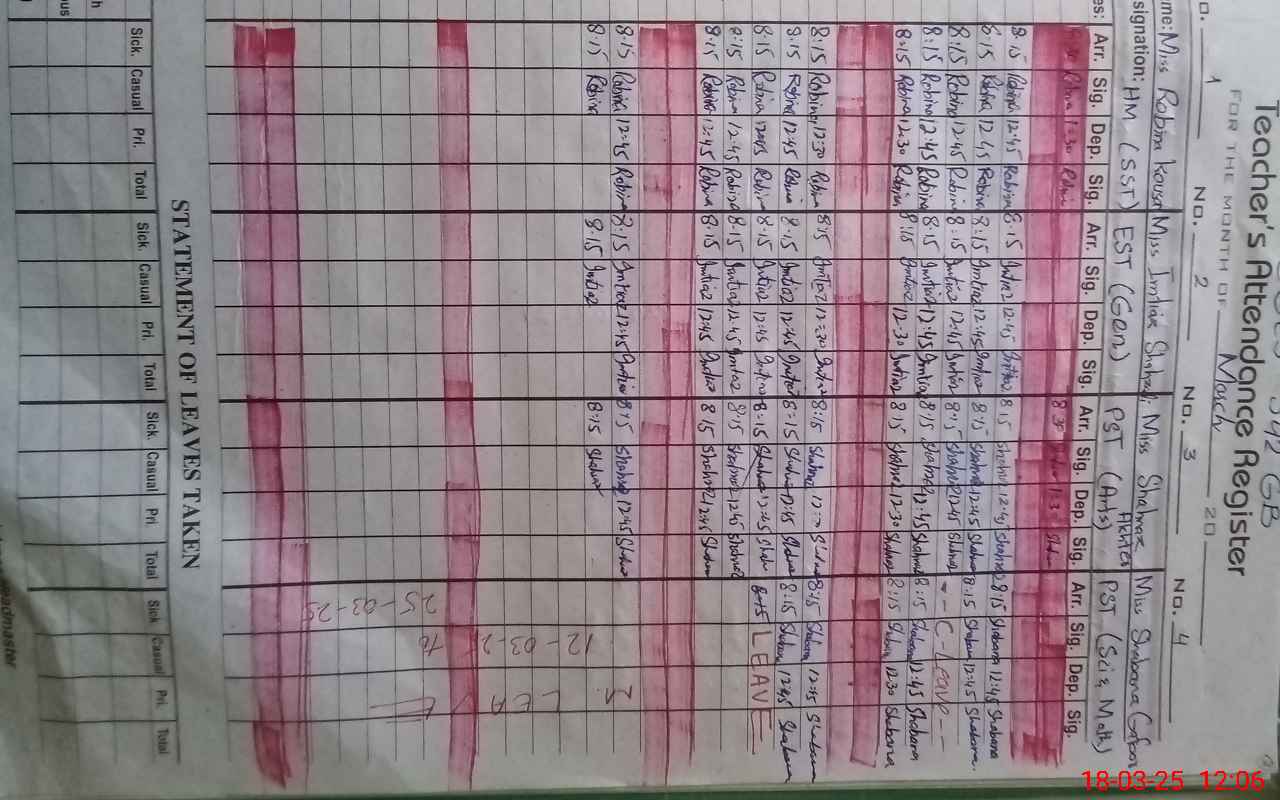 342 GB
Teacher's Attendance Register
FOR THE MONTH OF March 20
No. 1 No. 2 No. 3 No. 4
me: Miss Robina Kousar Miss Imtiaz Shahzadi Miss Shahnaz Akhter Miss Shabana Gafoor
signation: HM (SST) EST (Gen) PST (Arts) PST (Sci & Math)
es: Arr. Sig. Dep. Sig. Arr. Sig. Dep. Sig. Arr. Sig. Dep. Sig. Arr. Sig. Dep. Sig.
8:30 Robina 1:30 Robina 8:30 1:30
8:15 Robina 12:45 Robina 8:15 Imtiaz 12:45 Imtiaz 8:15 Shahnaz 12:45 Shahnaz 8:15 Shabana 12:45 Shabana
8:15 Robina 12:45 Robina 8:15 Imtiaz 12:45 Imtiaz 8:15 Shahnaz 12:45 Shahnaz 8:15 Shabana 12:45 Shabana
8:15 Robina 12:45 Robina 8:15 Imtiaz 12:45 Imtiaz 8:15 Shahnaz 12:45 Shahnaz - - C - Leave - -
8:15 Robina 12:45 Robina 8:15 Imtiaz 12:45 Imtiaz 8:15 Shahnaz 12:45 Shahnaz 8:15 Shabana 12:45 Shabana
8:15 Robina 12:30 Robina 8:15 Imtiaz 12:30 Imtiaz 8:15 Shahnaz 12:30 Shahnaz 8:15 Shabana 12:30 Shabana
8:15 Robina 12:30 Robina 8:15 Imtiaz 12:30 Imtiaz 8:15 Shahnaz 8:15 Shabana 12:15 Shabana
8:15 Robina 12:45 Robina 8:15 Imtiaz 12:45 Imtiaz 8:15 Shahnaz 12:45 Shahnaz 8:15 Shabana 12:45 Shabana
8:15 Robina 12:45 Robina 8:15 Imtiaz 12:45 Imtiaz 8:15 Shahnaz 12:45 Shahnaz LEAVE
8:15 Robina 12:45 Robina 8:15 Imtiaz 12:45 Imtiaz 8:15 Shahnaz 12:45 Shahnaz
8:15 Robina 12:45 Robina 8:15 Imtiaz 12:45 Imtiaz 8:15 Shahnaz 12:45 Shahnaz
8:15 Robina 12:45 Robina 8:15 Imtiaz 12:45 Imtiaz 8:15 Shahnaz 12:45 Shahnaz
8:15 Robina 8:15 Imtiaz 8:15 Shahnaz
M LEAVE
12-03-25 to 25-03-25
STATEMENT OF LEAVES TAKEN
Sick. Casual Pri. Total Sick. Casual Pri. Total Sick. Casual Pri Total Sick Casual Pri. Total
eadmaster
18-03-25 12:06